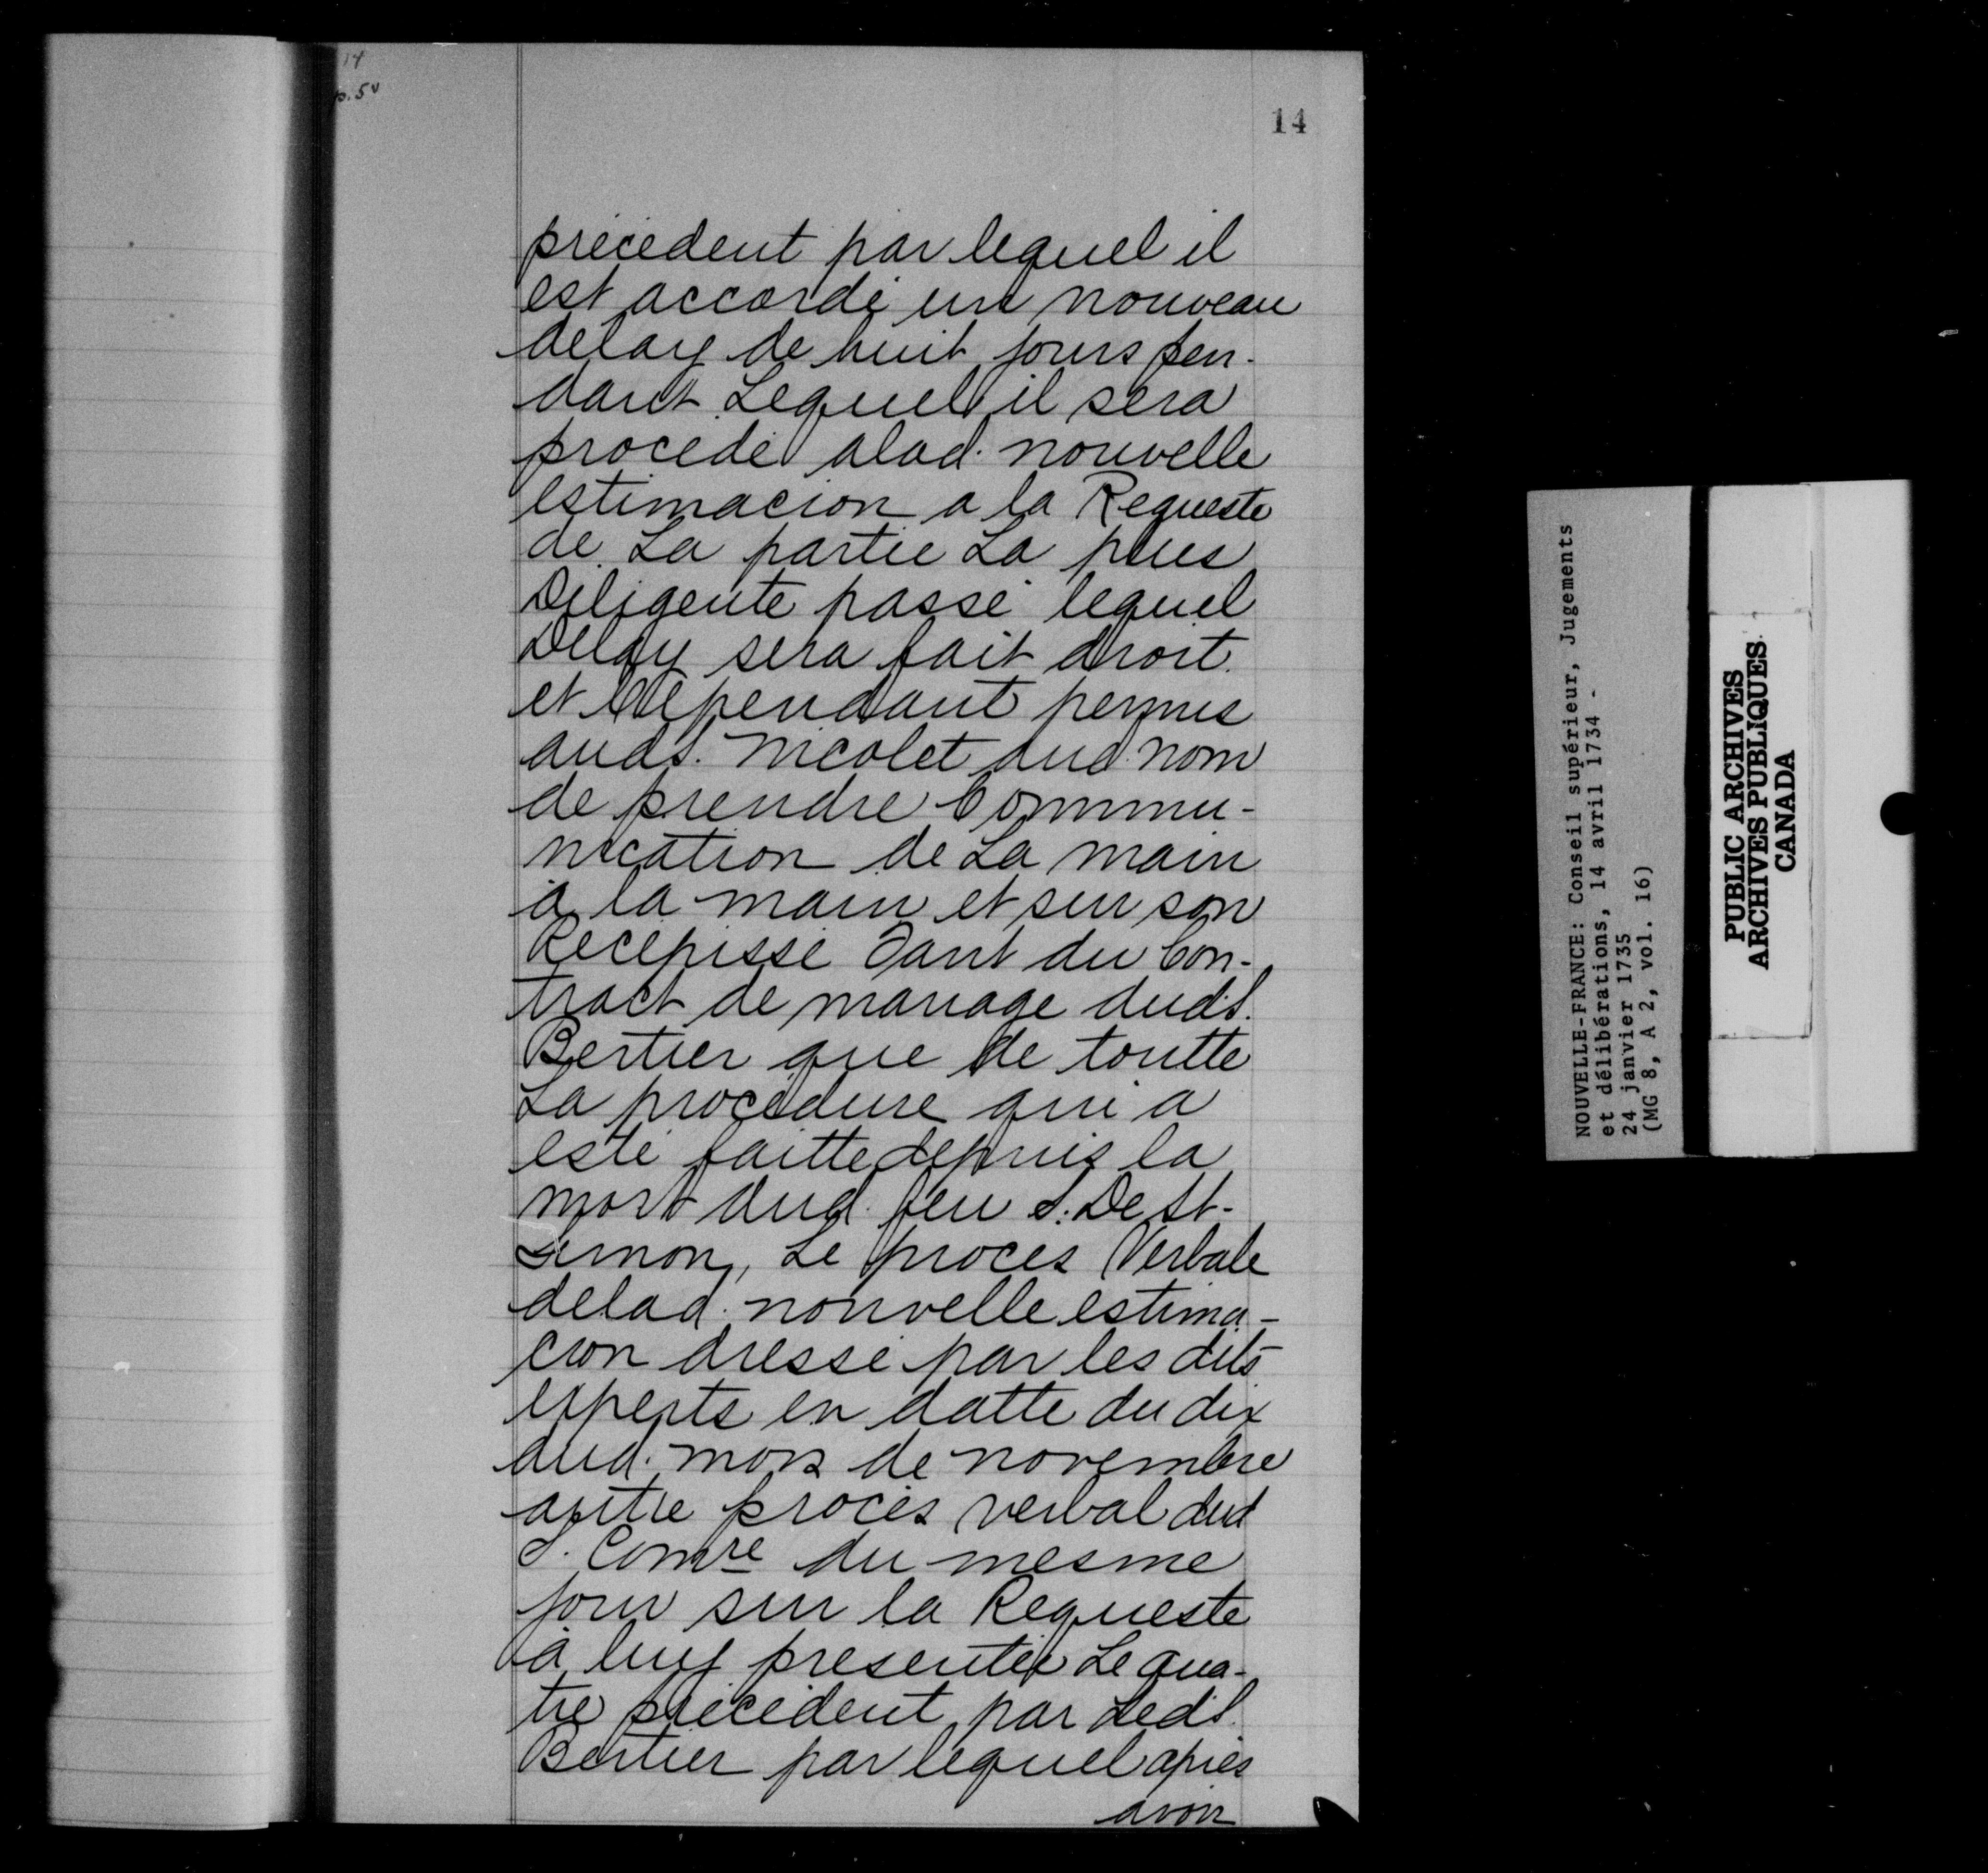 14
p. 5v
14
précédent par lequel il
est accordé un nouveau
delay de huit jours pen-
dant Lequel il sera
procédé alad. nouvelle
estimacion a la Requeste
de La partie La plus
Diligente passé lequel
Delay sera fait droit.
et Cependant permis
aud S. Nicolet aud. nom
de prendre Commu-
nication de La main
à la main et sur son
Recepissé Tant du Con-
tract de mariage dud S.
Bertier que de toutte
La procédure qui a
esté faitte depuis la
mort dud. feu S. De St-
Simon, Le procès Verbale
delad. nouvelle estima-
cion dressé par les dits
experts en datte du dix
dud. mois de novembre
autre procès verbal dud
S. Comre du mesme
jour sur la Requeste
à luy presentée Le qua-
tre précédent par Led S.
Bertier par lequel après
avoir
NOUVELLE-FRANCE: Conseil supérieur, Jugements
et délibérations, 14 avril 1734 -
24 janvier 1735
(MG 8, A 2, vol. 16)
PUBLIC ARCHIVES
ARCHIVES PUBLIQUES
CANADA